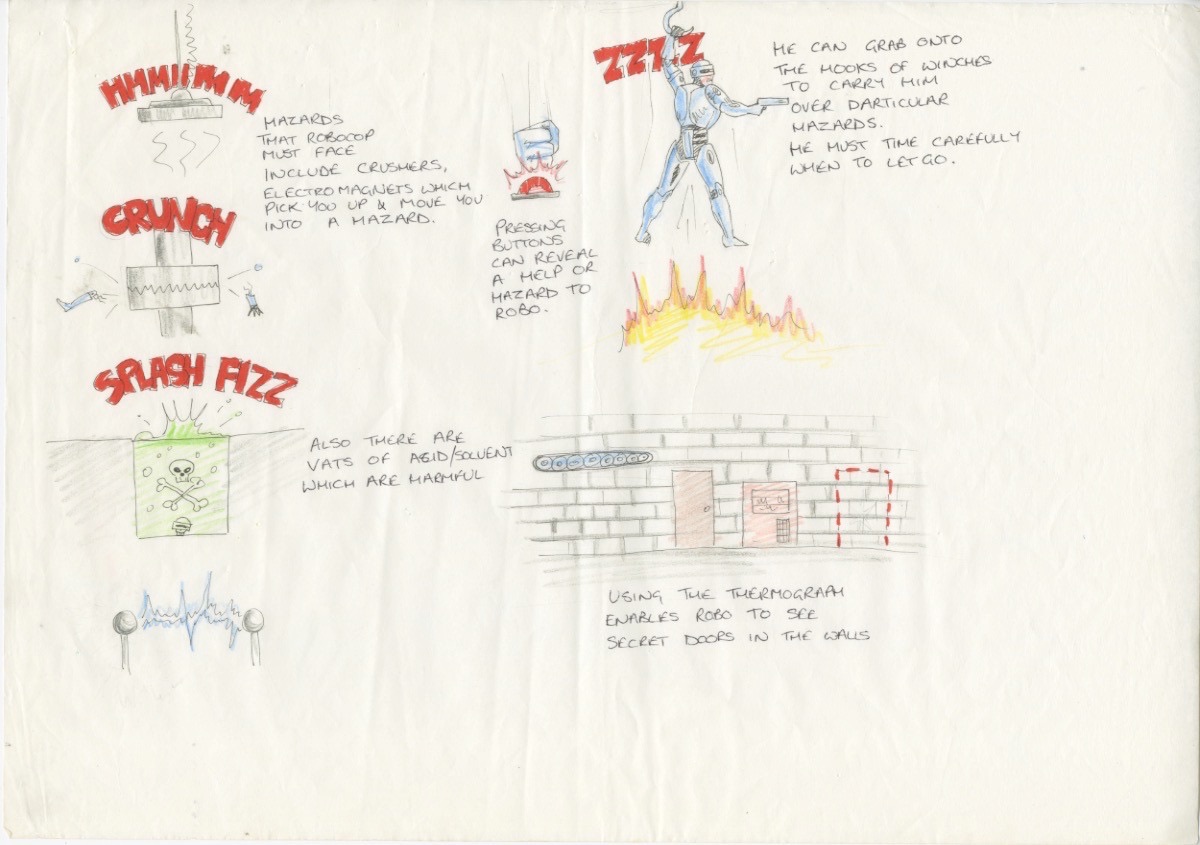 HMMMMMM
HAZARDS
THAT ROBOCOP
MUST FACE
INCLUDE CRUSHERS,
ELECTROMAGNETS WHICH
PICK YOU UP & MOVE YOU
INTO A HAZARD.
CRUNCH
SPLASH FIZZ
ALSO THERE ARE
VATS OF ACID/SOLVENT
WHICH ARE HARMFUL
PRESSING
BUTTONS
CAN REVEAL
A HELP OR
HAZARD TO
ROBO.
ZZZZZ
HE CAN GRAB ONTO
THE HOOKS OF WINCHES
TO CARRY HIM
OVER PARTICULAR
HAZARDS.
HE MUST TIME CAREFULLY
WHEN TO LET GO.
USING THE THERMOGRAPH
ENABLES ROBO TO SEE
SECRET DOORS IN THE WALLS